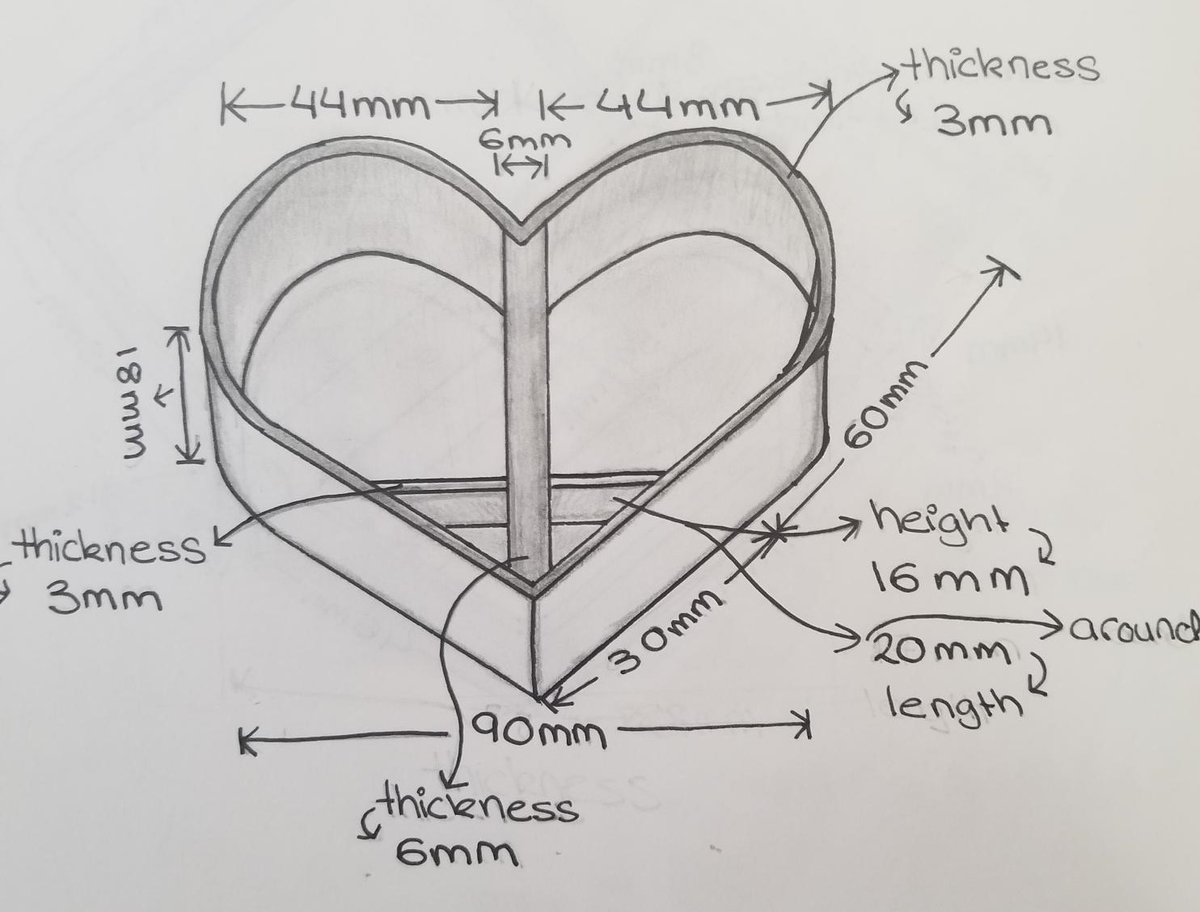 44mm
44mm
thickness
3mm
6mm
18mm
60mm
thickness
3mm
height
16mm
20mm
around
length
30mm
90mm
thickness
6mm